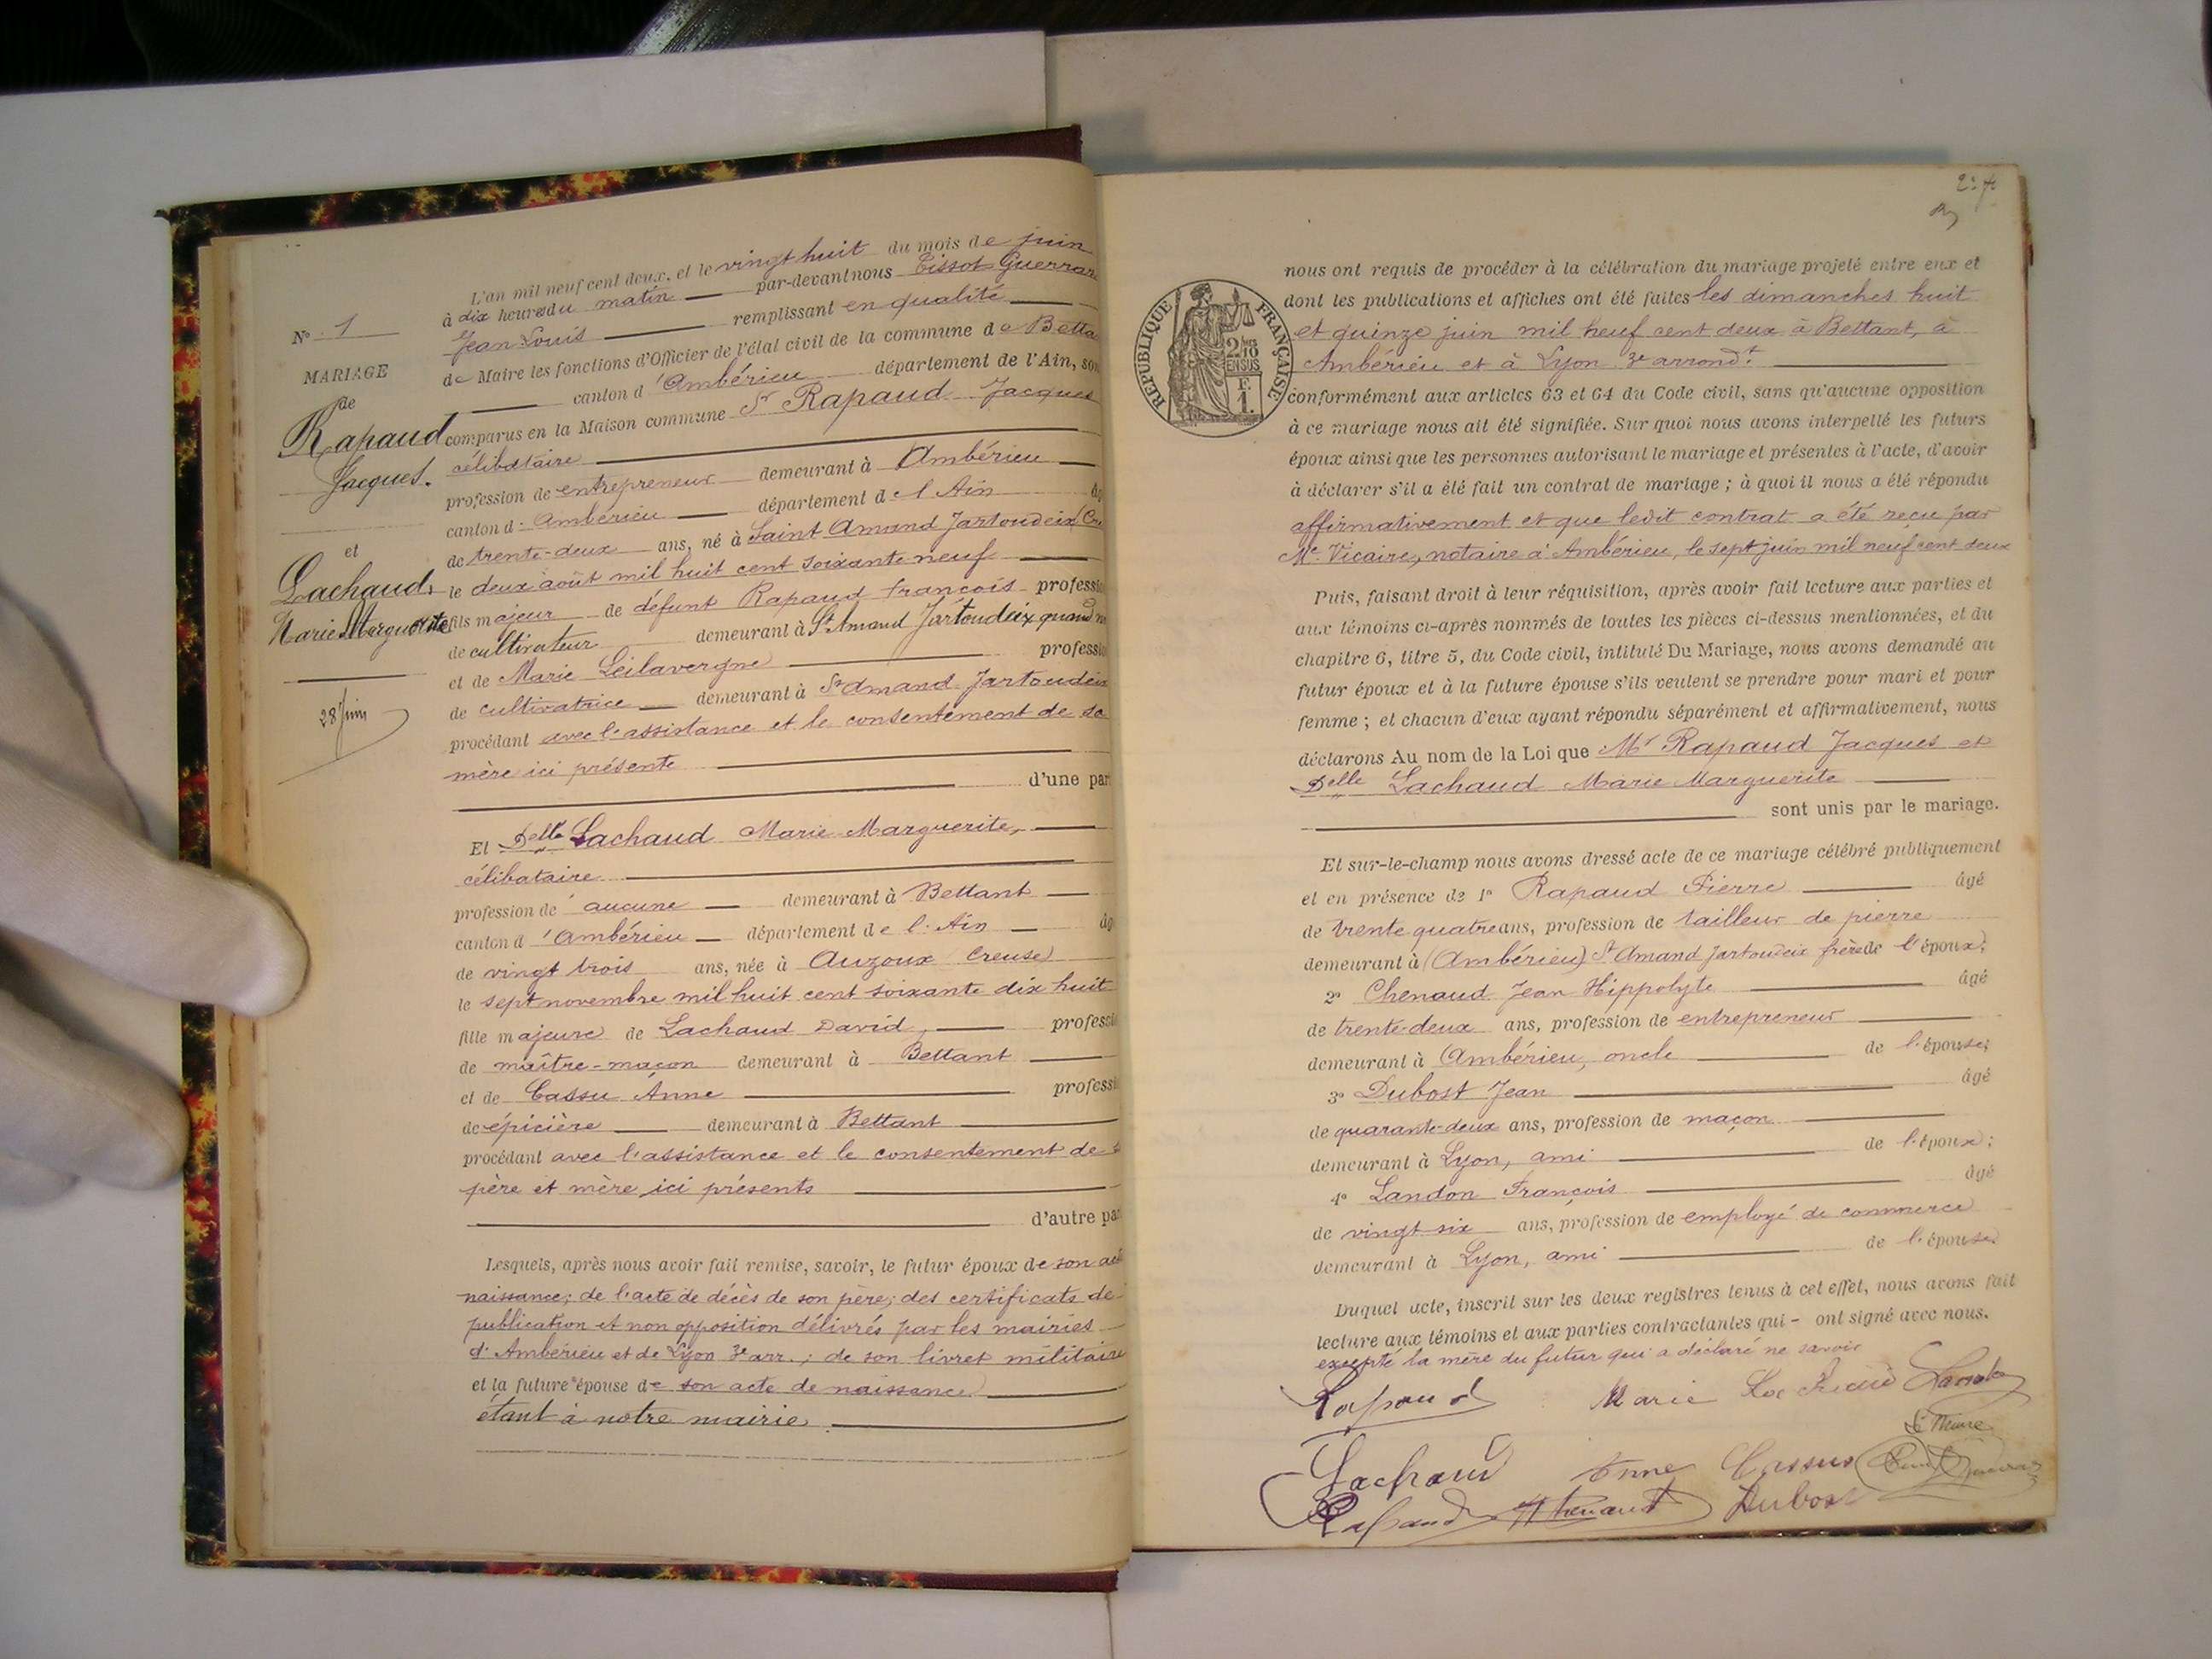 N° 1
MARIAGE
de
Rapaud
Jacques.
et
Lachaud
Marie Marguerite
28 Juin
L'an mil neuf cent deux, et le vingt huit du mois de juin
à dix heures du matin par-devant nous Tissot Guerraz
Jean Louis remplissant en qualité
de Maire les fonctions d'Officier de l'état civil de la commune de Betta
canton d'Ambérieu département de l'Ain, son
comparus en la Maison commune Sr Rapaud Jacques
célibataire
profession de entrepreneur demeurant à Ambérieu
canton d'Ambérieu département de l'Ain âg
de trente-deux ans, né à Saint Amand Jartoudeix (Cre
le deux août mil huit cent soixante neuf
fils majeur de défunt Rapaud François professio
de cultivateur demeurant à St Amand Jartoudeix quand
et de Marie Leilavergne professio
de cultivatrice demeurant à St Amand Jartoudeix
procédant avec l'assistance et le consentement de sa
mère ici présente
d'une par
Et Delle Lachaud Marie Marguerite,
célibataire
profession de aucune demeurant à Bettant
canton d'Ambérieu département de l'Ain âg
de vingt trois ans, née à Auzoux Creuse)
le sept novembre mil huit cent soixante dix huit
fille majeure de Lachaud David, professi
de maître-maçon demeurant à Bettant
et de Cassu Anne professi
de épicière demeurant à Bettant
procédant avec l'assistance et le consentement de
père et mère ici présents
d'autre par
Lesquels, après nous avoir fait remise, savoir, le futur époux de son ac
naissance; de l'acte de décès de son père; des certificats de
publication et non opposition délivrés par les mairies
d'Ambérieu et de Lyon 3e arr.; de son livret militaire
et la future épouse de son acte de naissance
étant à notre mairie.
2e f
RÉPUBLIQUE FRANÇAISE
2/10
EN SUS
F.
1.
nous ont requis de procéder à la célébration du mariage projeté entre eux et
dont les publications et affiches ont été faites les dimanches huit
et quinze juin mil neuf cent deux à Bettant, à
Ambérieu et à Lyon 3e arrondt.
conformément aux articles 63 et 64 du Code civil, sans qu'aucune opposition
à ce mariage nous ait été signifiée. Sur quoi nous avons interpellé les futurs
époux ainsi que les personnes autorisant le mariage et présentes à l'acte, d'avoir
à déclarer s'il a été fait un contrat de mariage ; à quoi il nous a été répondu
affirmativement et que ledit contrat a été reçu par
Me Vicaire, notaire à Ambérieu, le sept juin mil neuf cent deux
Puis, faisant droit à leur réquisition, après avoir fait lecture aux parties et
aux témoins ci-après nommés de toutes les pièces ci-dessus mentionnées, et du
chapitre 6, titre 5, du Code civil, intitulé Du Mariage, nous avons demandé au
futur époux et à la future épouse s'ils veulent se prendre pour mari et pour
femme ; et chacun d'eux ayant répondu séparément et affirmativement, nous
déclarons Au nom de la Loi que Mr Rapaud Jacques et
Delle Lachaud Marie Marguerite
sont unis par le mariage.
Et sur-le-champ nous avons dressé acte de ce mariage célébré publiquement
et en présence de 1° Rapaud Pierre âgé
de trente quatre ans, profession de tailleur de pierre
demeurant à (Ambérieu) St Amand Jartoudeix frère de l'époux;
2° Chenaud Jean Hippolyte âgé
de trente-deux ans, profession de entrepreneur
demeurant à Ambérieu, oncle de l'épouse;
3° Dubost Jean âgé
de quarante-deux ans, profession de maçon
demeurant à Lyon, ami de l'époux;
4° Landon François âgé
de vingt six ans, profession de employé de commerce
demeurant à Lyon, ami de l'épouse
Duquel acte, inscrit sur les deux registres tenus à cet effet, nous avons fait
lecture aux témoins et aux parties contractantes qui - ont signé avec nous.
excepté la mère du futur qui a déclaré ne savoir
Rapaud Marie Lachaud Landon
Le Maire
Lachaud Anne Cassus
Rapaud H Chenaud Dubost